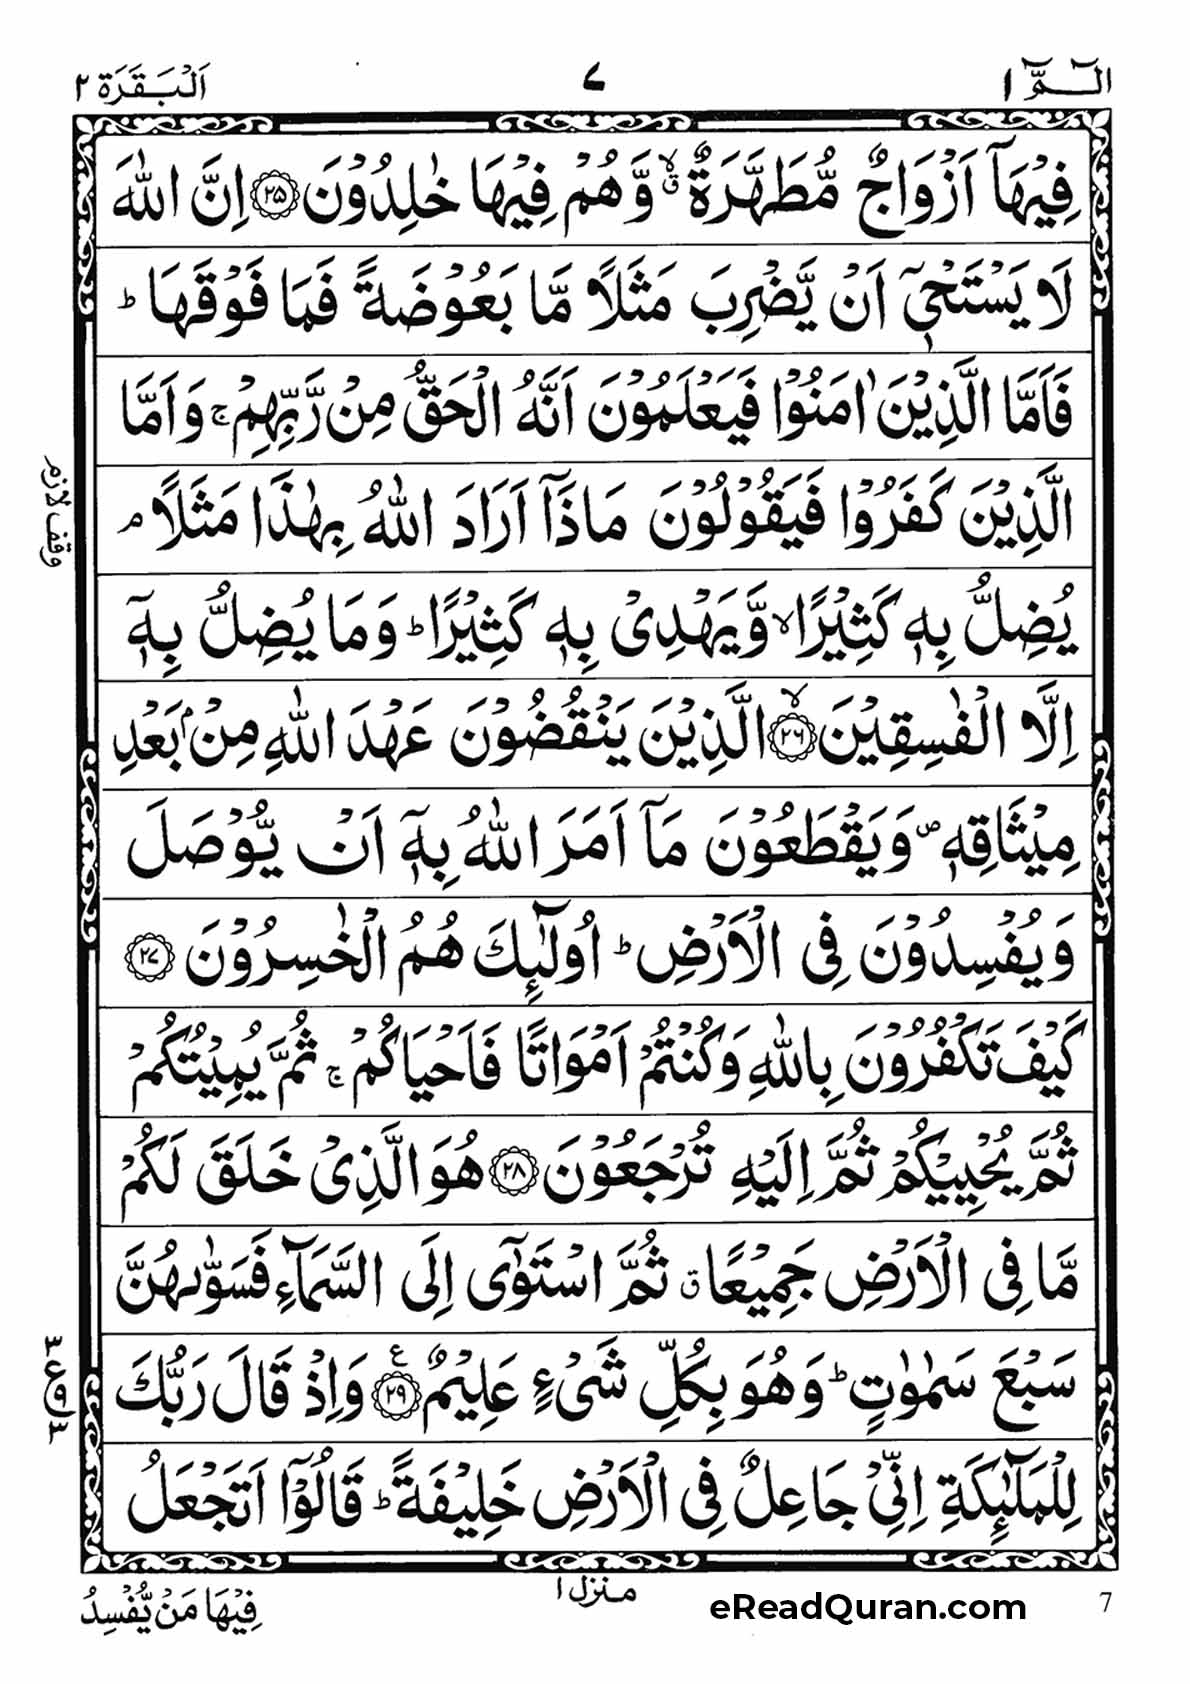 الٓمّٓ ١ ٧ اَلْبَقَرَة ٢
فِيْهَآ اَزْوَاجٌ مُّطَهَّرَةٌ ۙۗ وَّهُمْ فِيْهَا خٰلِدُوْنَ ﴿۲۵﴾ اِنَّ اللّٰهَ
لَا يَسْتَحْيٖۤ اَنْ يَّضْرِبَ مَثَلًا مَّا بَعُوْضَةً فَمَا فَوْقَهَا ؕ
فَاَمَّا الَّذِيْنَ اٰمَنُوْا فَيَعْلَمُوْنَ اَنَّهُ الْحَقُّ مِنْ رَّبِّهِمْ ۚ وَاَمَّا
الَّذِيْنَ كَفَرُوْا فَيَقُوْلُوْنَ مَاذَآ اَرَادَ اللّٰهُ بِهٰذَا مَثَلًا ۘ
وقف لازم
يُضِلُّ بِهٖ كَثِيْرًا ۙ وَّيَهْدِىْ بِهٖ كَثِيْرًا ؕ وَمَا يُضِلُّ بِهٖۤ
اِلَّا الْفٰسِقِيْنَ ۙ﴿۲۶﴾ الَّذِيْنَ يَنْقُضُوْنَ عَهْدَ اللّٰهِ مِنْۢ بَعْدِ
مِيْثَاقِهٖ ۪ وَيَقْطَعُوْنَ مَآ اَمَرَ اللّٰهُ بِهٖۤ اَنْ يُّوْصَلَ
وَيُفْسِدُوْنَ فِى الْاَرْضِ ؕ اُولٰٓئِكَ هُمُ الْخٰسِرُوْنَ ﴿۲۷﴾
كَيْفَ تَكْفُرُوْنَ بِاللّٰهِ وَكُنْتُمْ اَمْوَاتًا فَاَحْيَاكُمْ ۚ ثُمَّ يُمِيْتُكُمْ
ثُمَّ يُحْيِيْكُمْ ثُمَّ اِلَيْهِ تُرْجَعُوْنَ ﴿۲۸﴾ هُوَ الَّذِىْ خَلَقَ لَكُمْ
مَّا فِى الْاَرْضِ جَمِيْعًا ۗ ثُمَّ اسْتَوٰٓى اِلَى السَّمَآءِ فَسَوّٰىهُنَّ
سَبْعَ سَمٰوٰتٍ ؕ وَهُوَ بِكُلِّ شَىْءٍ عَلِيْمٌ ﴿۲۹﴾ ع وَاِذْ قَالَ رَبُّكَ
٣ ع ٩ ٣
لِلْمَلٰٓئِكَةِ اِنِّىْ جَاعِلٌ فِى الْاَرْضِ خَلِيْفَةً ؕ قَالُوْٓا اَتَجْعَلُ
منزل ١
فِيْهَا مَنْ يُّفْسِدُ
eReadQuran.com 7